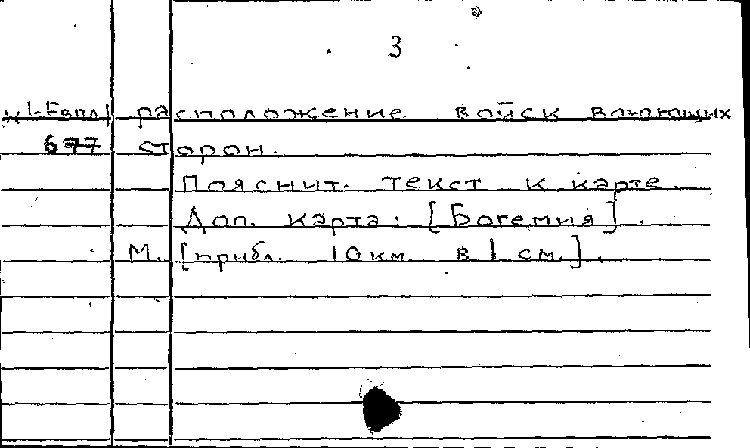 3
к 1-Евпл расположение войск воюющих
677 сторон.
Пояснит. текст к карте.
Доп. карта: [Богемия].
М. [прибл. 10 км. в 1 см.].